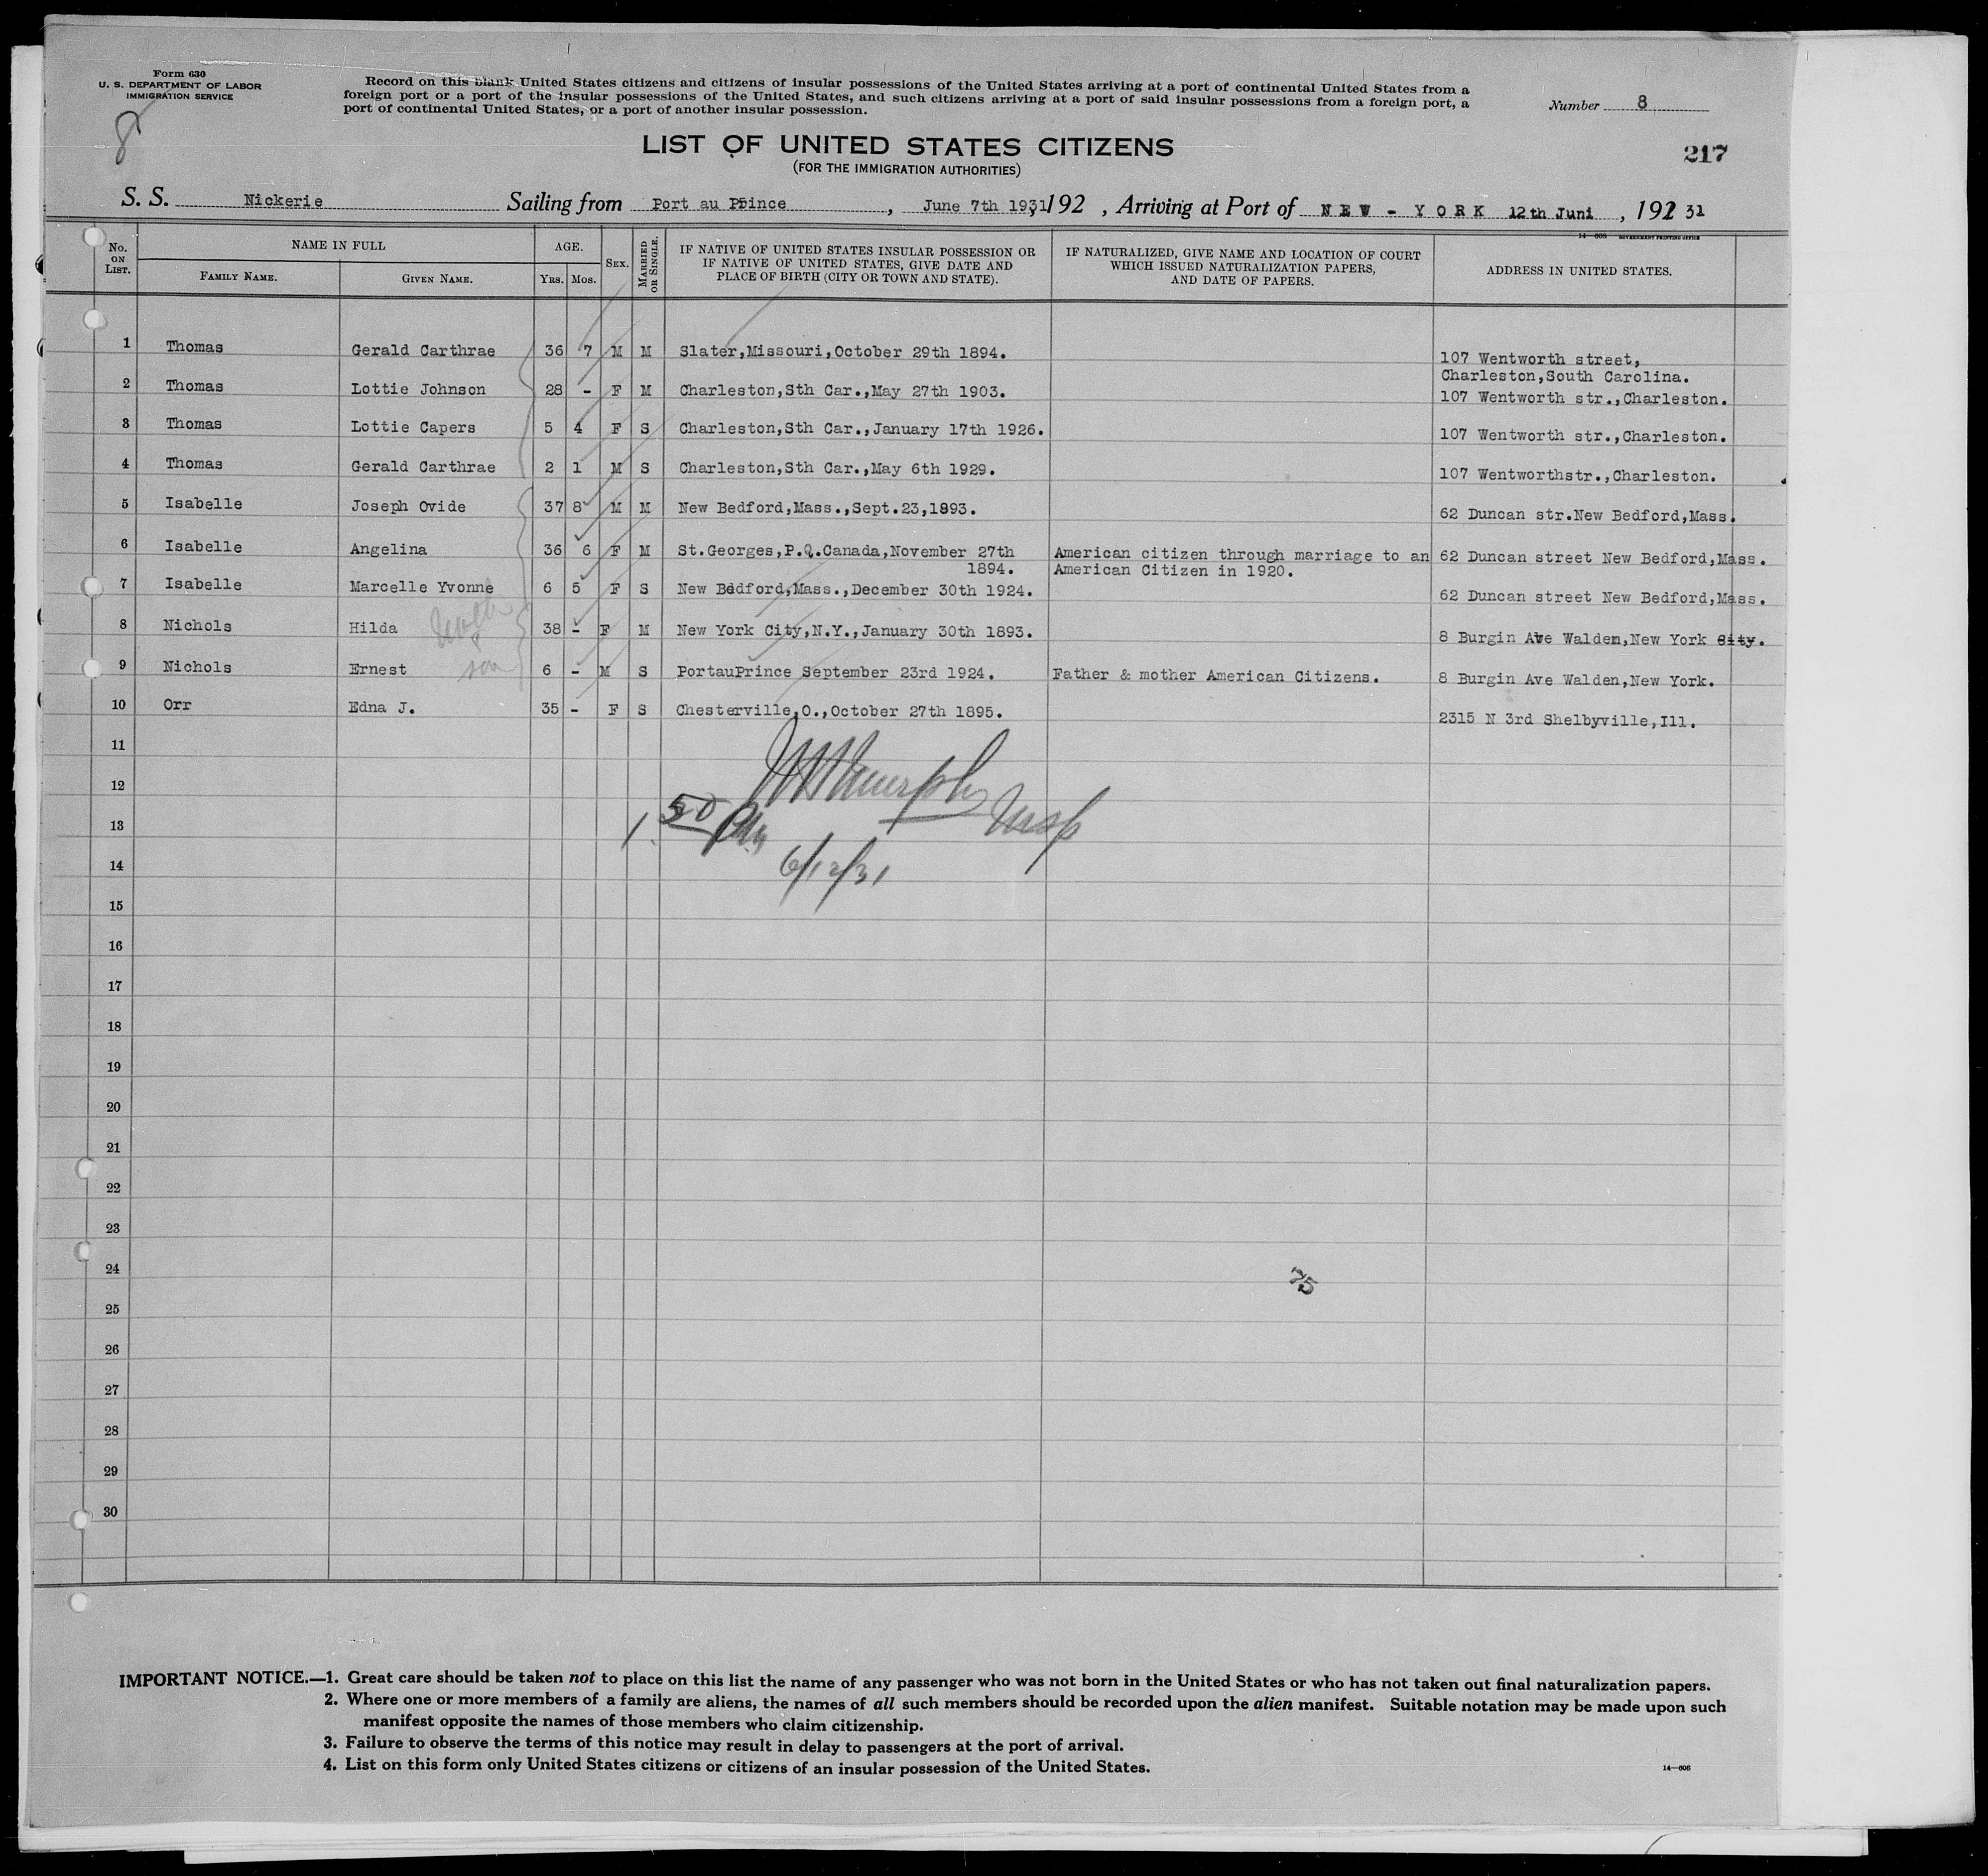 Form 630
U. S. DEPARTMENT OF LABOR
IMMIGRATION SERVICE
8
Record on this blank United States citizens and citizens of insular possessions of the United States arriving at a port of continental United States from a
foreign port or a port of the insular possessions of the United States, and such citizens arriving at a port of said insular possessions from a foreign port, a
port of continental United States, or a port of another insular possession.
Number 8
217
LIST OF UNITED STATES CITIZENS
(FOR THE IMMIGRATION AUTHORITIES)
S. S. Nickerie Sailing from Port au Prince, June 7th 1931, 192 , Arriving at Port of NEW - YORK 12th Juni, 192 31
14-608 GOVERNMENT PRINTING OFFICE
No. ON LIST. NAME IN FULL FAMILY NAME. GIVEN NAME. AGE. YRS. MOS. SEX. MARRIED OR SINGLE. IF NATIVE OF UNITED STATES INSULAR POSSESSION OR IF NATIVE OF UNITED STATES, GIVE DATE AND PLACE OF BIRTH (CITY OR TOWN AND STATE). IF NATURALIZED, GIVE NAME AND LOCATION OF COURT WHICH ISSUED NATURALIZATION PAPERS, AND DATE OF PAPERS. ADDRESS IN UNITED STATES.
1 Thomas Gerald Carthrae 36 7 M M Slater,Missouri,October 29th 1894. 107 Wentworth street,
Charleston,South Carolina.
2 Thomas Lottie Johnson 28 - F M Charleston,Sth Car.,May 27th 1903. 107 Wentworth str.,Charleston.
3 Thomas Lottie Capers 5 4 F S Charleston,Sth Car.,January 17th 1926. 107 Wentworth str.,Charleston.
4 Thomas Gerald Carthrae 2 1 M S Charleston,Sth Car.,May 6th 1929. 107 Wentworthstr.,Charleston.
5 Isabelle Joseph Ovide 37 8 M M New Bedford,Mass.,Sept.23,1893. 62 Duncan str.New Bedford,Mass.
6 Isabelle Angelina 36 6 F M St.Georges,P.Q.Canada,November 27th American citizen through marriage to an 62 Duncan street New Bedford,Mass.
1894. American Citizen in 1920.
7 Isabelle Marcelle Yvonne 6 5 F S New Bedford,Mass.,December 30th 1924. 62 Duncan street New Bedford,Mass.
8 Nichols Hilda 38 - F M New York City,N.Y.,January 30th 1893. 8 Burgin Ave Walden,New York City.
9 Nichols Ernest son 6 - M S PortauPrince September 23rd 1924. Father & mother American Citizens. 8 Burgin Ave Walden,New York.
10 Orr Edna J. 35 - F S Chesterville,O.,October 27th 1895. 2315 N 3rd Shelbyville,Ill.
11
12 Murphy
13 1 50 Pm Insp
14 6/12/31
15
16
17
18
19
20
21
22
23
24 75
25
26
27
28
29
30
IMPORTANT NOTICE.—1. Great care should be taken not to place on this list the name of any passenger who was not born in the United States or who has not taken out final naturalization papers.
2. Where one or more members of a family are aliens, the names of all such members should be recorded upon the alien manifest. Suitable notation may be made upon such
manifest opposite the names of those members who claim citizenship.
3. Failure to observe the terms of this notice may result in delay to passengers at the port of arrival.
4. List on this form only United States citizens or citizens of an insular possession of the United States.
14—606